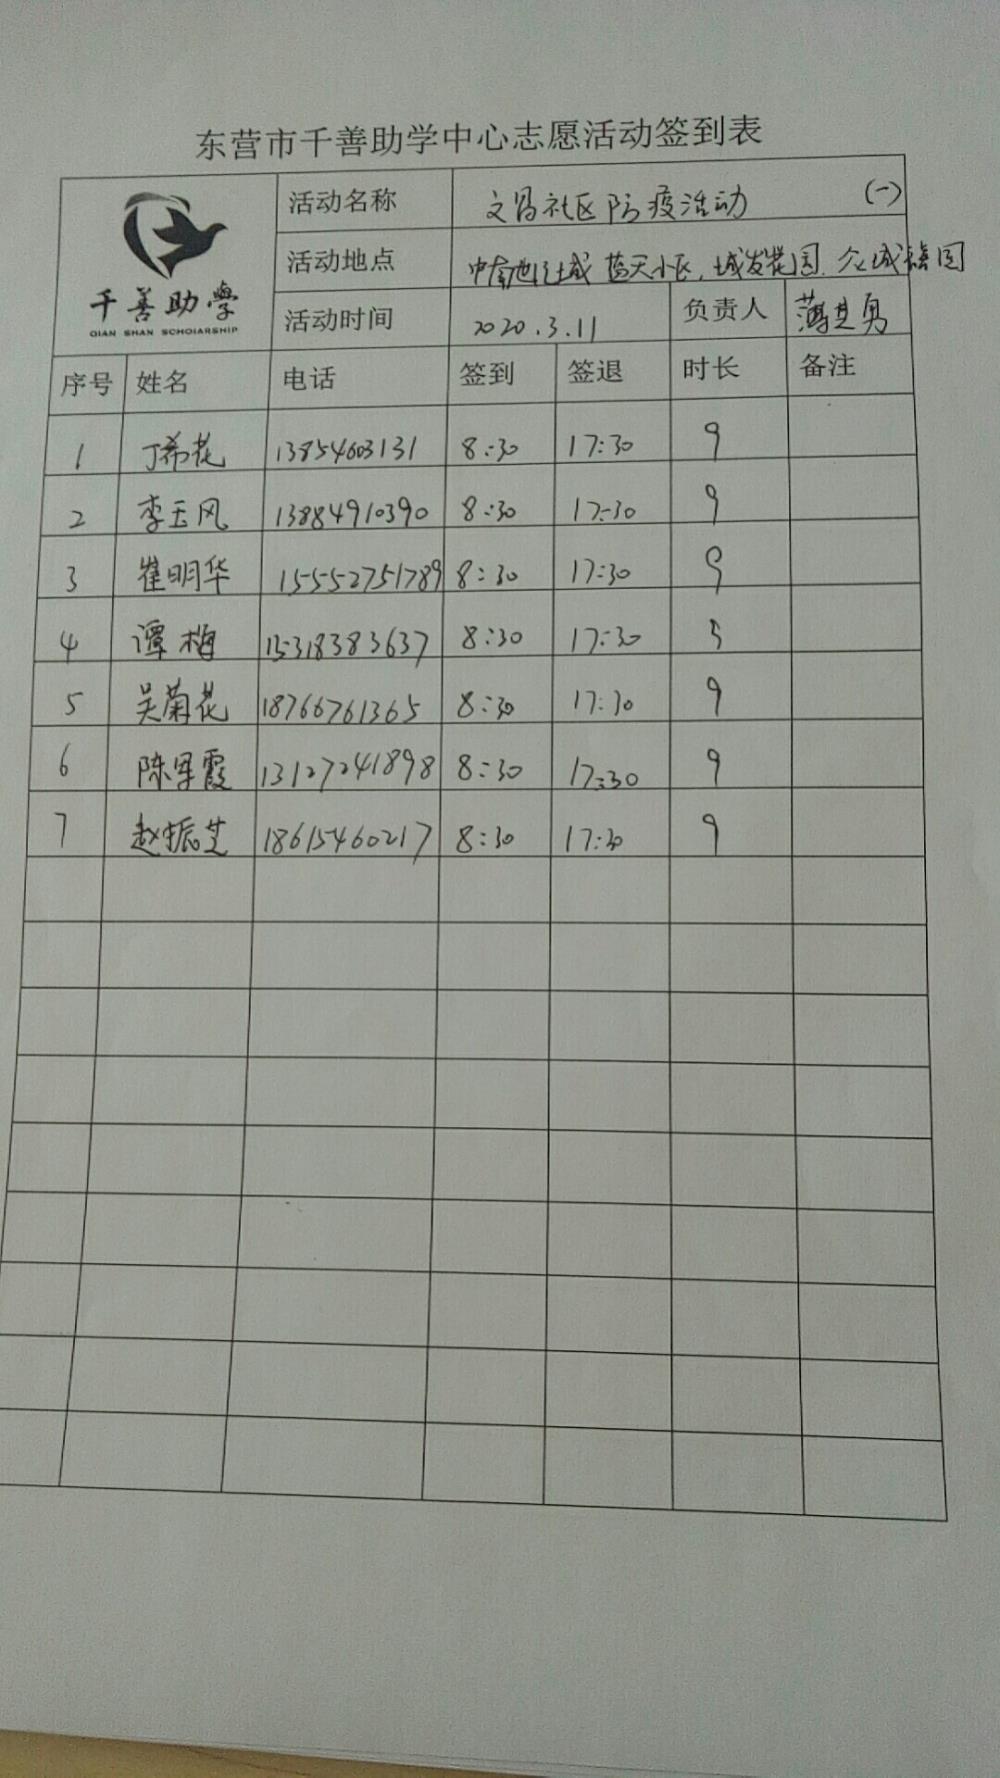 东营市千善助学中心志愿活动签到表
千善助學
QIAN SHAN SCHOIARSHIP
活动名称 文昌社区防疫活动 (一)
活动地点 蓝天小区、城发花园、众城福园
活动时间 2020.3.11 负责人 薄其勇
序号 姓名 电话 签到 签退 时长 备注
1 丁希花 13854603131 8:30 17:30 9
2 李玉风 13884910390 8:30 17:30 9
3 崔明华 15552751789 8:30 17:30 9
4 谭梅 15318383637 8:30 17:30
5 吴菊花 18766761365 8:30 17:30 9
6 陈军霞 13127241898 8:30 17:30 9
7 赵振芝 18615460217 8:30 17:30 9